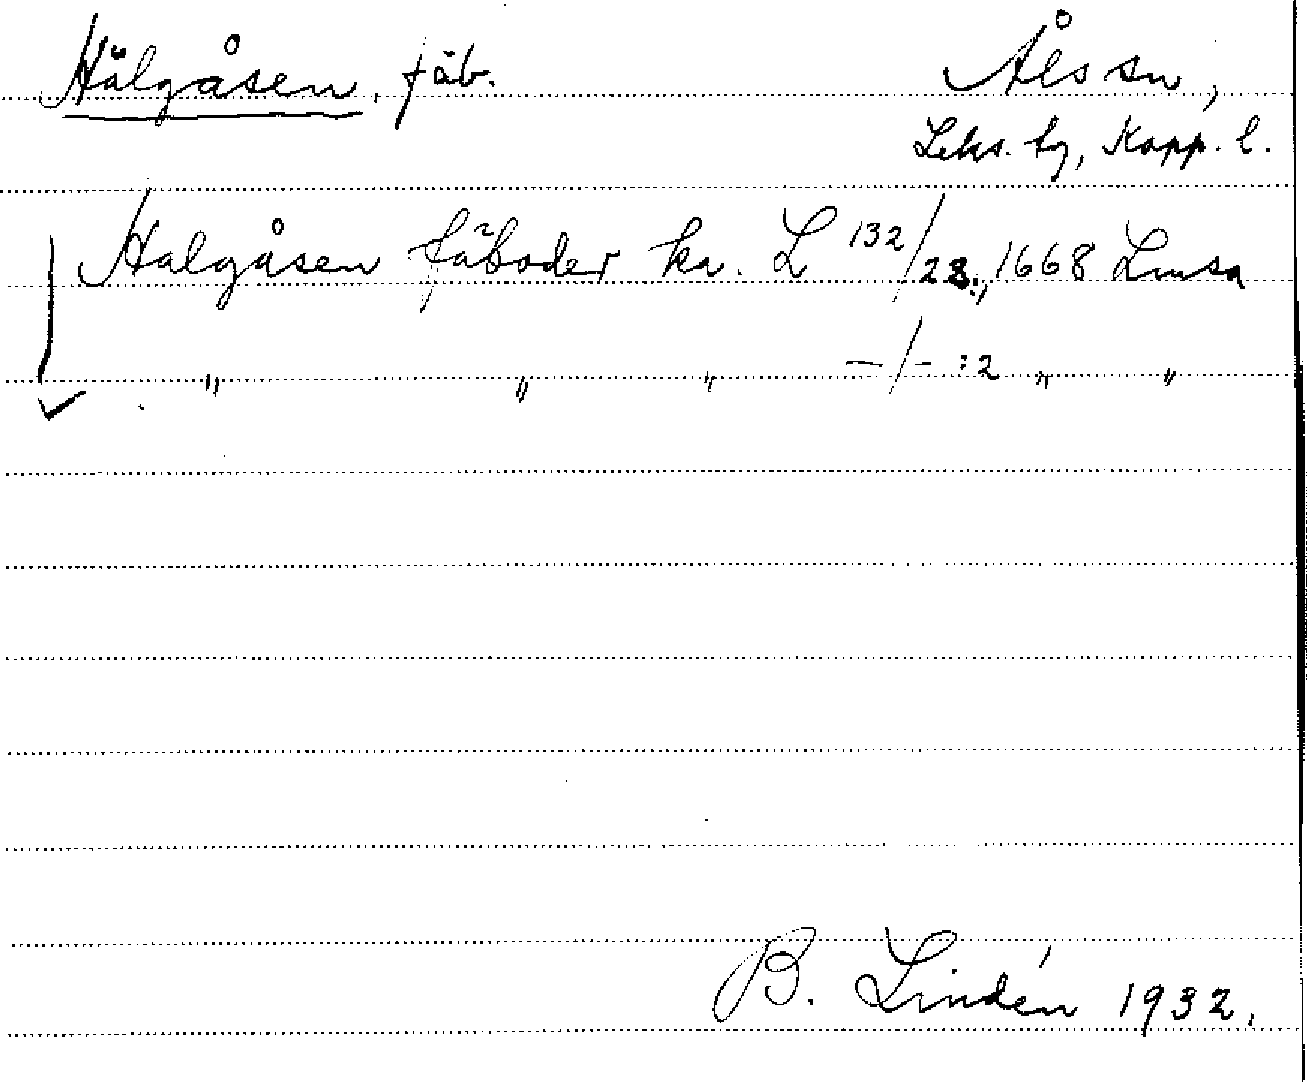 Hälgåsen, fäb. Åls sn,
Leks. tg, Kopp. l.
Halgåsen fäboder ka. L 132/28:, 1668 Lmsa
" " " —/— :2 " "
B. Lindén 1932.